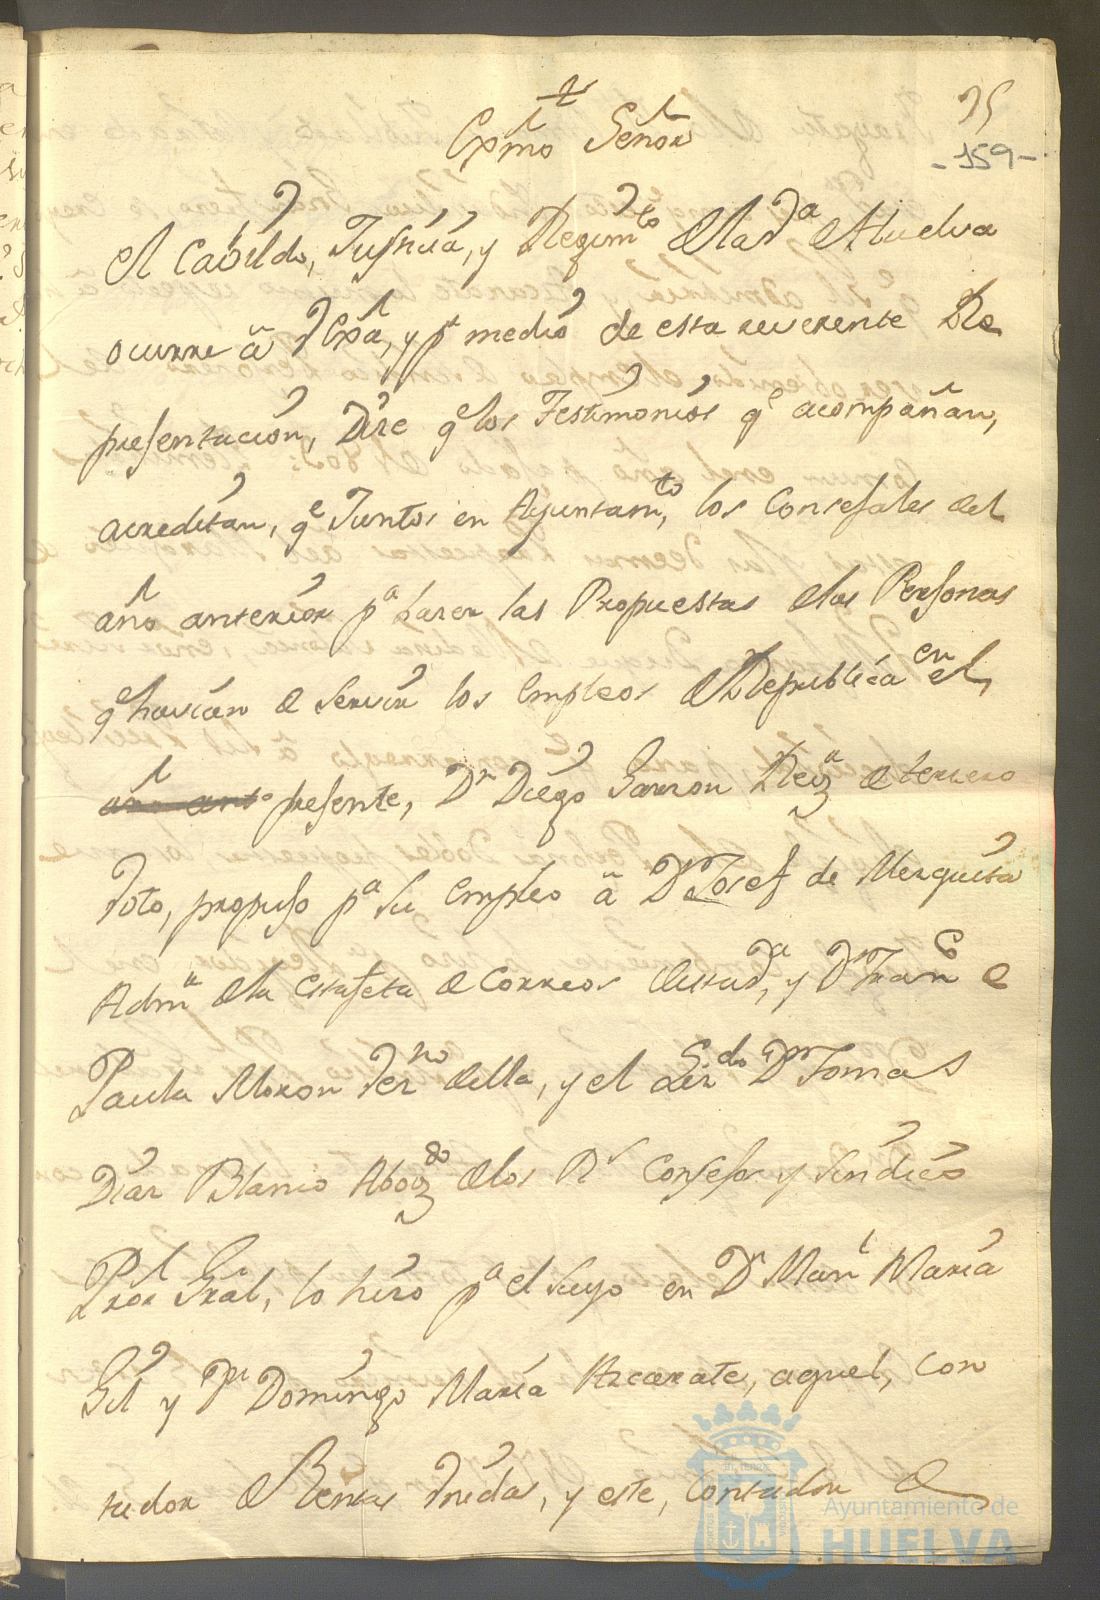 75
-159-
Exmo Señor
El Cabildo, Justicia, y Regimto de la Va de Huelva
ocurre â V Exa, y pr medio de esta reverente Re
presentacion, Dice qe los Testimonios qe acompañan,
acreditan, qe Juntos en Ayuntamto, los Consejales del
año anterior pa hacer las Propuestas de las Personas
qe havian de servir los empleos de Republica en el
presente, Dn Diego Garzon Regr de tercero
Voto, propuso pa su empleo â Dn Josef de Mezquita
Admr de la estafeta de Correos de esta Va, y Dn Franco de
Paula Moron Vezno de ella, y el Licdo Dn Tomas
Diaz Blanco Abogdo de los Rs Consejos y Sindico
Pror Gral, lo hizo pa el suyo en Dn Manl Maria
Gil y Dn Domingo Maria Azcarate, aquel, Con
tador de Rentas Unidas, y este, Contador de
Ayuntamiento de
HUELVA